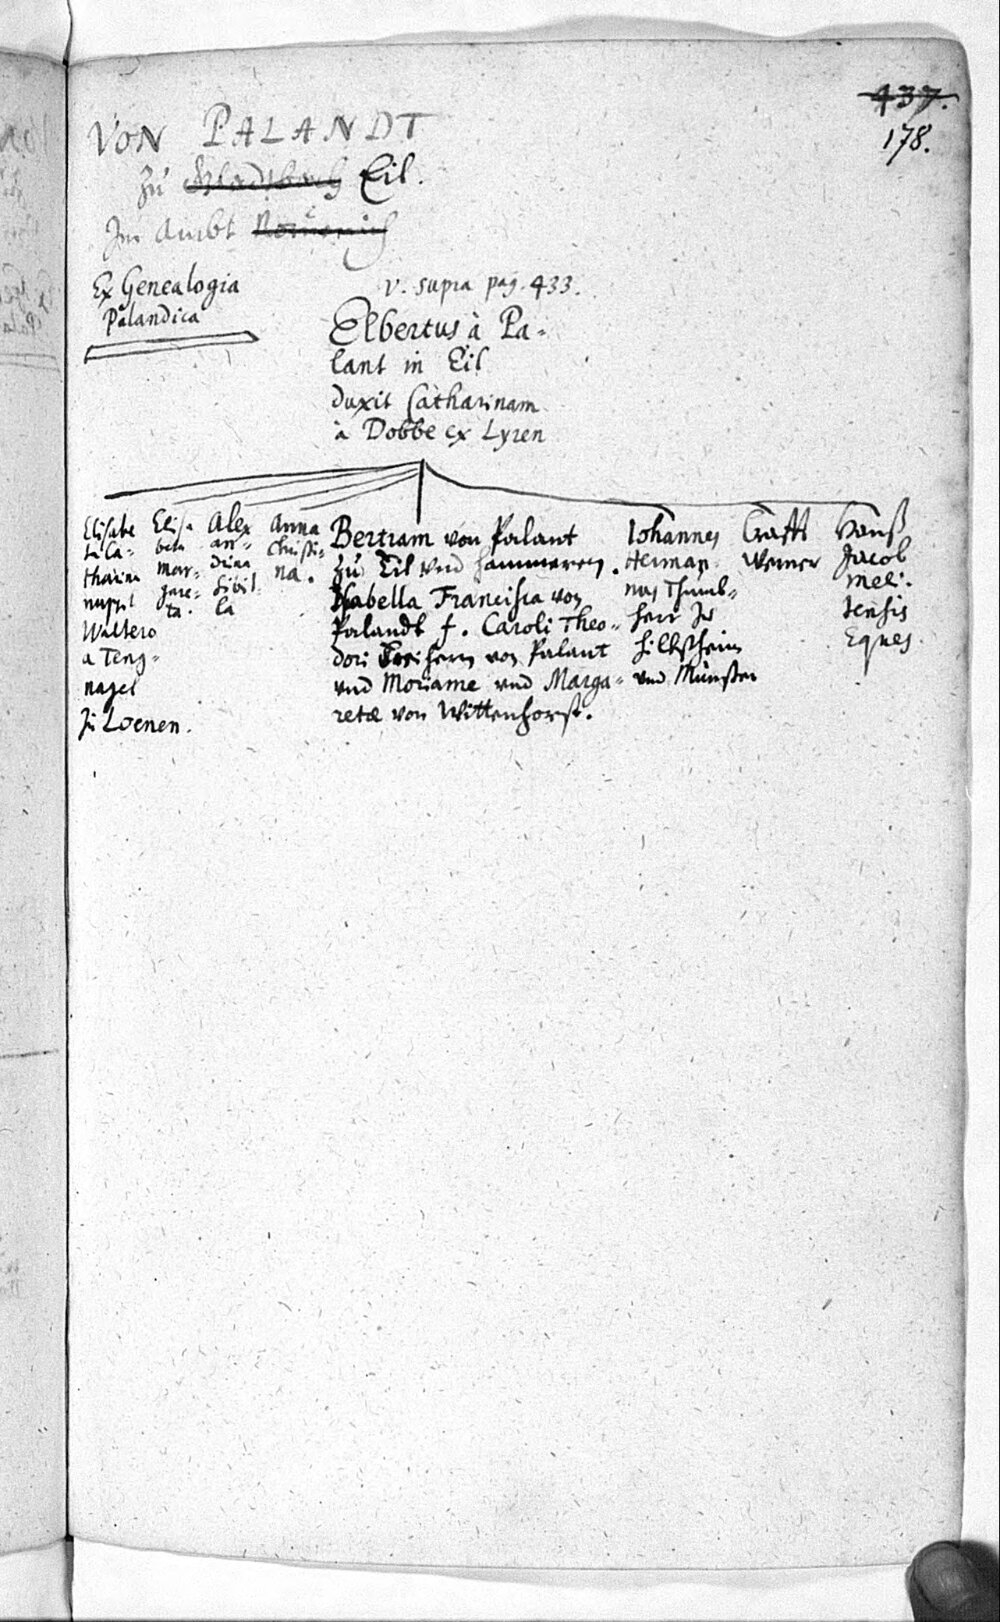 437.
178.
VON PALANDT
zu Gladtbach Eil.
Im Ambt
Ex Genealogia
Palandica
v. supra pag. 433.
Elbertus à Pa-
lant in Eil
duxit Catharinam
à Dobbe ex Lyren
Elisabe
ta Ca-
tharina
nupsit
Waltero
a Teng-
nagel
zu Loenen.
Elisa
beta
mar-
gare-
ta.
Alex
an-
drina
Sibil
la
Anna
Christi-
na.
Bertram von Palant
zu Eil vnd Hammeren.
Isabella Francisca von
Palandt f. Caroli Theo-
dori Freihern von Palant
vnd Moriame vnd Marga-
retæ von Wittenhorst.
Iohannes
Herman-
nus Thumb-
herr zu
Hildesheim
vnd Münster
Crafft
Werner
Hanß
Jacob
meli-
tensis
Eques.